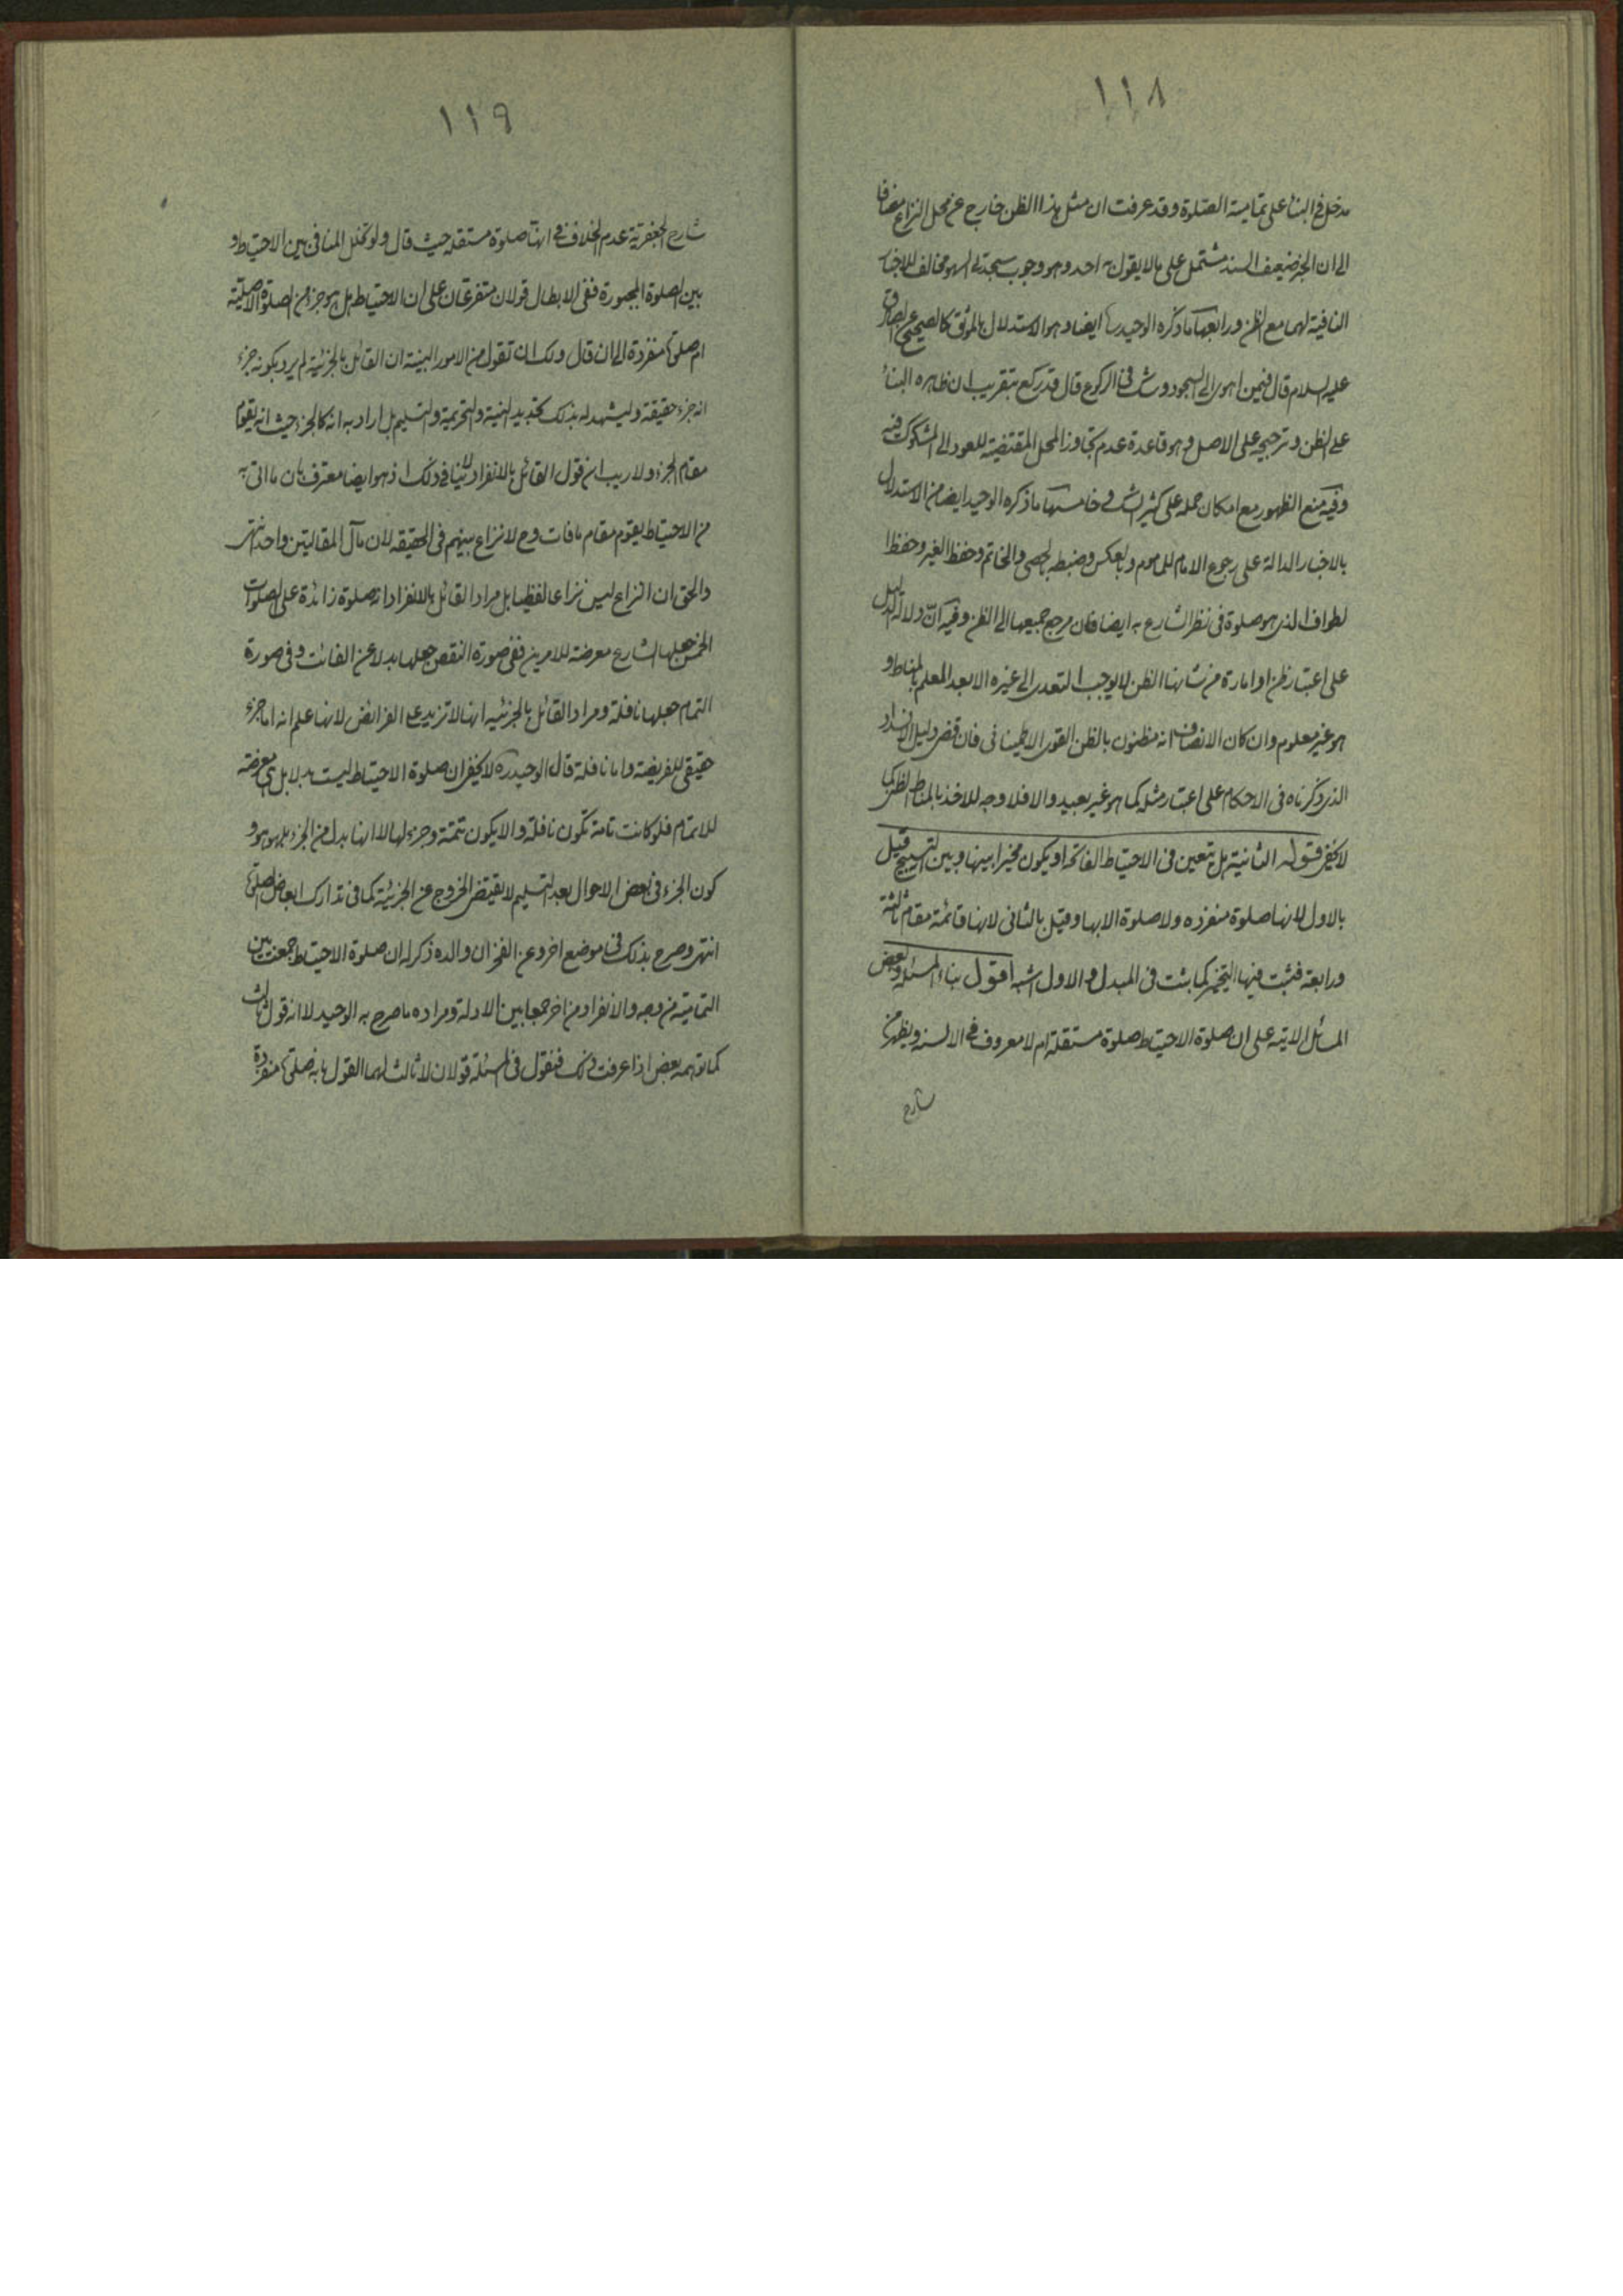 ١١٨
مدخل في البناء على تمامية الصلوة وقد عرفت ان مثل هذا الظن خارج عن محل النزاع مضافا
الى ان الخبر ضعيف السند مشتمل على ما لا يقول به احد وهو وجوب سجدتى السهو مخالف للاخبار
النافية لهما مع الظن ورابعها ما ذكره الوحيد ره ايضا وهو الاستدلال بالموثق كالصحيح عن الصادق
عليه السلام قال فيمن اهوى الى السجود وشك في الركوع قال قد ركع بتقريب ان ظاهره البناء
على الظن وترجيحه على الاصل وهو قاعدة عدم تجاوز المحل المقتضية للعود الى المشكوك فيه
وفيه منع الظهور مع امكان حمله على كثير الشك وخامسها ما ذكره الوحيد ايضا من الاستدلال
بالاخبار الدالة على رجوع الامام للماموم وبالعكس وضبطه بالحصى والخاتم وحفظ الغير وحفظ ا
لطواف الذى هو صلوة في نظر الشارع به ايضا فان مرجع جميعها الى الظن وفيه ان دلالة الدليل
على اعتبار ظن او امارة من شانها الظن لا يوجب التعدى الى غيره الا بعد العلم بالمناط و
هو غير معلوم وان كان الانصاف انه مظنون بالظن القوى الاطمينانى فان قضى دليل الانسداد
الذى ذكرناه في الاحكام على اعتبار مثله كما هو غير بعيد والا فلا وجه للاخذ بالمناط الظنى كما
لا يخفى قوله الثانية هل يتعين في الاحتياط الفاتحة او يكون مخيرا بينها وبين التسبيح قيل
بالاول لانها صلوة منفرده ولا صلوة الا بها وقيل بالثانى لانها قائمة مقام ثالثة
ورابعة فثبت فيها التخيير كما يثبت في المبدل والاول اشبه اقول بناء المسئلة وبعض
المسائل الاتية على ان صلوة الاحتياط صلوة مستقلة ام لا معروف في الالسنة ويظهر من
شارح
١١٩
شارح الجعفرية عدم الخلاف في انها صلوة مستقلة حيث قال ولو تخلل المنافى بين الاحتياط و
بين الصلوة المجبورة ففى الابطال قولان متفرعان على ان الاحتياط هل هو جزء من الصلوة الاصلية
ام صلوة منفردة الى ان قال ولك ان تقول من الامور البينة ان القائل بالجزئية لم يرد بكونه جزء
انه جزء حقيقة وليشهد له بذلك تجديد النية والتحريمة والتسليم بل اراد به انه كالجزء حيث انه يقوم
مقام الجزء ولا ريب ان قول القائل بالانفراد لا ينافى ذلك اذ هو ايضا معترف بان ما اتى به
من الاحتياط يقوم مقام ما فات وح لا نزاع بينهم في الحقيقه لان مآل المقالتين واحد انتهى
والحق ان النزاع ليس نزاعا لفظيا بل مراد القائل بالانفراد انه صلوة زائدة على الصلوات
الخمس جعلها الشارع معرضة للامرين ففى صورة النقص جعلها بدلا عن الفائت وفى صورة
التمام جعلها نافلة ومراد القائل بالجزئيه انها لا تزيد على الفرائض لانها علم انه اما جزء
حقيقى للفريضة واما نافلة قال الوحيد ره لا يخفى ان صلوة الاحتياط ليست بدلا بل هى معرضة
للاتمام فلو كانت تامة تكون نافلة والا يكون تتمة وجزء لها لا انها بدل من الجزء بل هو هو و
كون الجزء في بعض الاحوال بعد التسليم لا يقتضى الخروج عن الجزئية كما في تدارك ابعاض الصلوة
انتهى وصرح بذلك في موضع اخر وعن الفخر ان والده ذكر له ان صلوة الاحتياط جمعت بين
التمامية من وجه والانفراد من اخر جمعا بين الادلة ومراده ما صرح به الوحيد لا انه قول ثالث
كما توهمه بعض اذا عرفت ذلك فنقول في المسئلة قولان لا ثالث لهما القول بانه صلوة منفردة